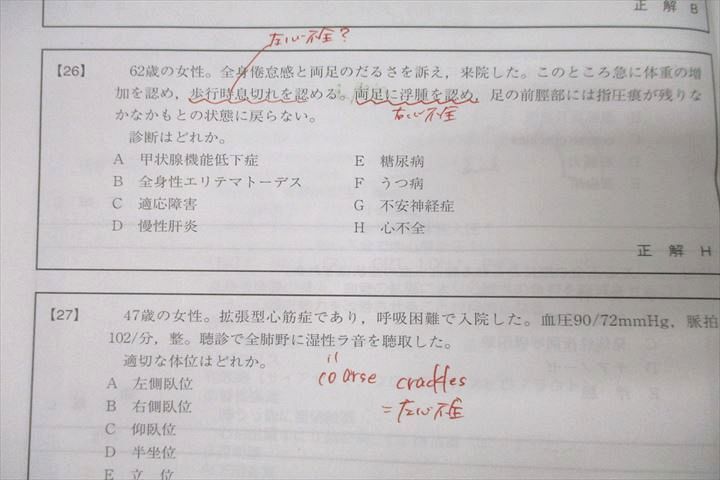 正 解 B
左心不全?
【26】 62歳の女性。全身倦怠感と両足のだるさを訴え，来院した。このところ急に体重の増
加を認め，歩行時息切れを認める。両足に浮腫を認め，足の前脛部には指圧痕が残りな
かなかもとの状態に戻らない。
右心不全
診断はどれか。
A 甲状腺機能低下症
B 全身性エリテマトーデス
C 適応障害
D 慢性肝炎
E 糖尿病
F うつ病
G 不安神経症
H 心不全
正 解 H
【27】 47歳の女性。拡張型心筋症であり，呼吸困難で入院した。血圧90/72mmHg，脈拍
102/分，整。聴診で全肺野に湿性ラ音を聴取した。
適切な体位はどれか。
coarse crackles
=左心不全
A 左側臥位
B 右側臥位
C 仰臥位
D 半坐位
E 立 位